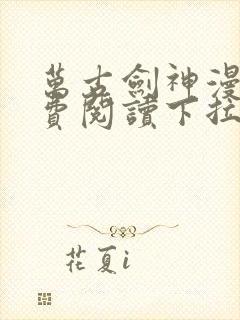 萬古劍神漫
費閱讀下拉
花夏i